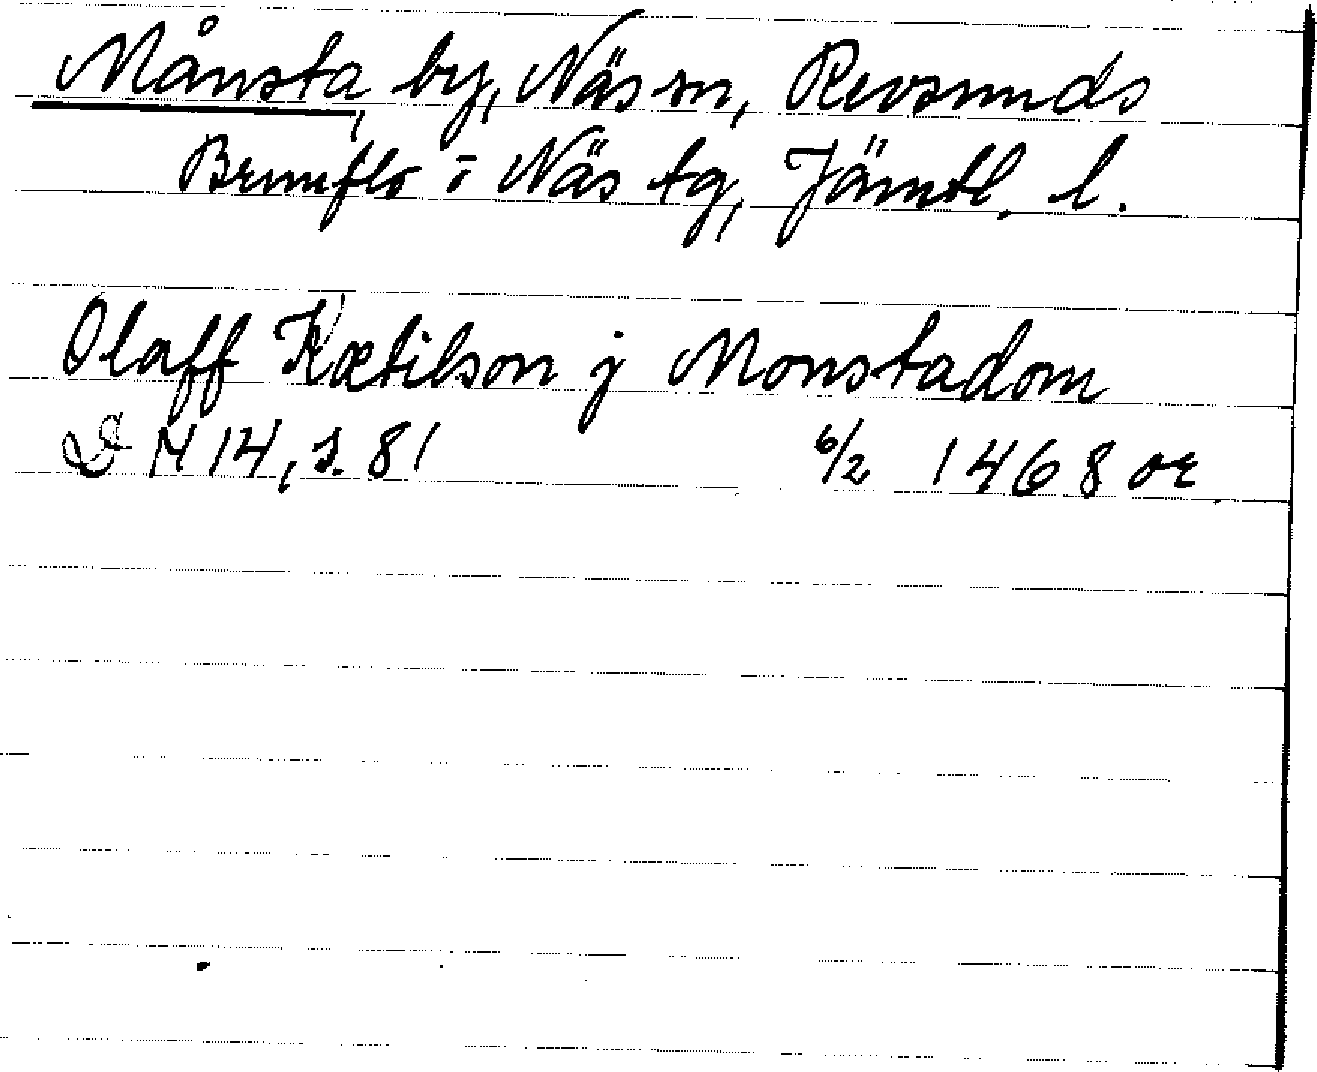 Månsta, by, Näs sn, Revsunds
Brunflo o Näs tg, Jämtl. l.
Olaff Kætilson j Monstadom
DN 14, s. 81 6/2 1468 or